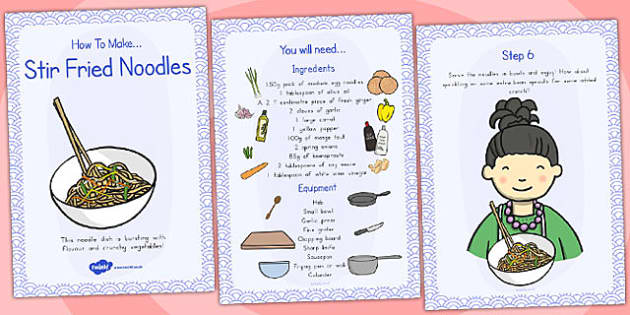 How To Make...
Stir Fried Noodles
This noodle dish is bursting with
flavour and crunchy vegetables!
twinkl
You will need...
Ingredients
150g pack of medium egg noodles
1 tablespoon of olive oil
A 2.5 centimetre piece of fresh ginger
2 cloves of garlic
1 large carrot
1 yellow pepper
100g of mange tout
2 spring onions
85g of beansprouts
2 tablespoons of soy sauce
1 tablespoon of white wine vinegar
Equipment
Hob
Small bowl
Garlic press
Fine grater
Chopping board
Sharp knife
Saucepan
Frying pan or wok
Colander
Step 6
Serve the noodles in bowls and enjoy! How about
sprinkling on some extra bean sprouts for some added
crunch?